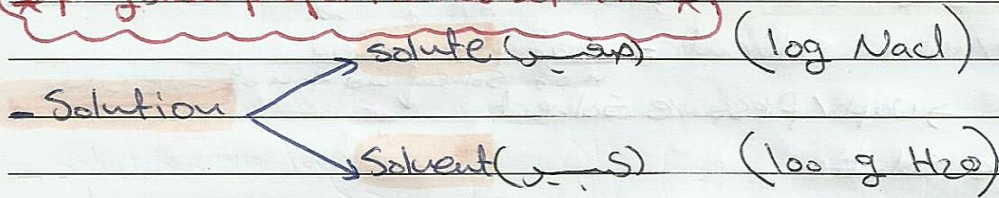 solute (صغير) (10g Nacl)
- Solution
Solvent (كبير) (100 g H2O)